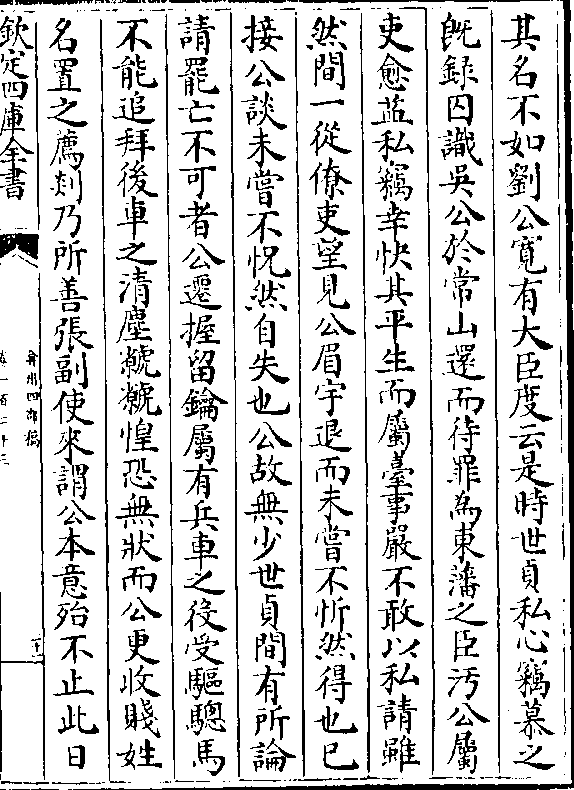 其名不如劉公寛有大臣度云是時世貞私心竊慕之
既録囚識吳公於常山還而待罪為東藩之臣汚公屬
吏愈益私竊幸快其平生而屬臺事嚴不敢以私請雖
然間一從僚吏望見公眉宇退而未嘗不忻然得也已
接公談未嘗不怳然自失也公故無少世貞間有所論
請罷亡不可者公遷握留鑰屬有兵車之役受驅驄馬
不能追拜後車之清塵虩虩惶恐無狀而公更收賤姓
名置之薦剡乃所善張副使來謂公本意殆不止此日
欽定四庫全書
弇州四部稿